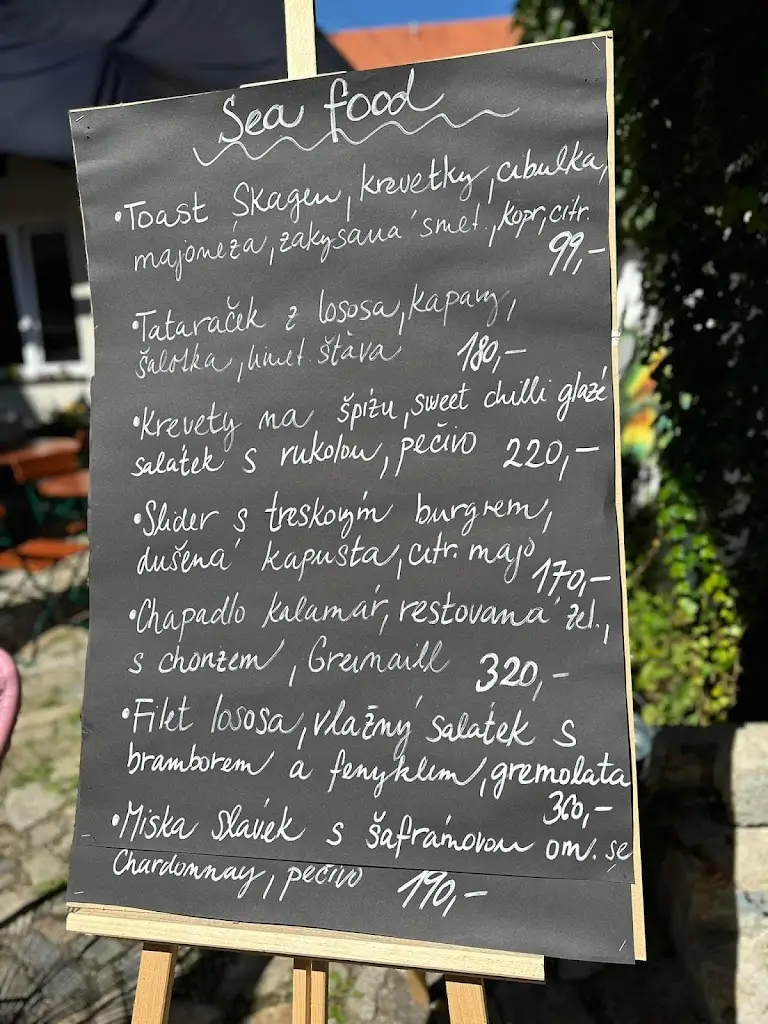 Sea food
•Toast Skagen, krevetky, cibulka,
majonéza, zakysaná smet., kopr, citr.
99,-
•Tataráček z lososa, kapary,
šalotka, limet. štáva 180,-
•Krevety na špízu, sweet chilli glazé
salátek s rukolou, pečivo 220,-
•Slider s treskovým burgrem,
dušená kapusta, citr. majo
170,-
•Chapadlo kalamár, restovaná zel.,
s chorizem, Grenaill 320,-
•Filet lososa, vlažný salátek s
bramborem a fenyklem, gremolata
360,-
•Miska slávek s šafránovou om. se
Chardonnay, pečivo 190,-